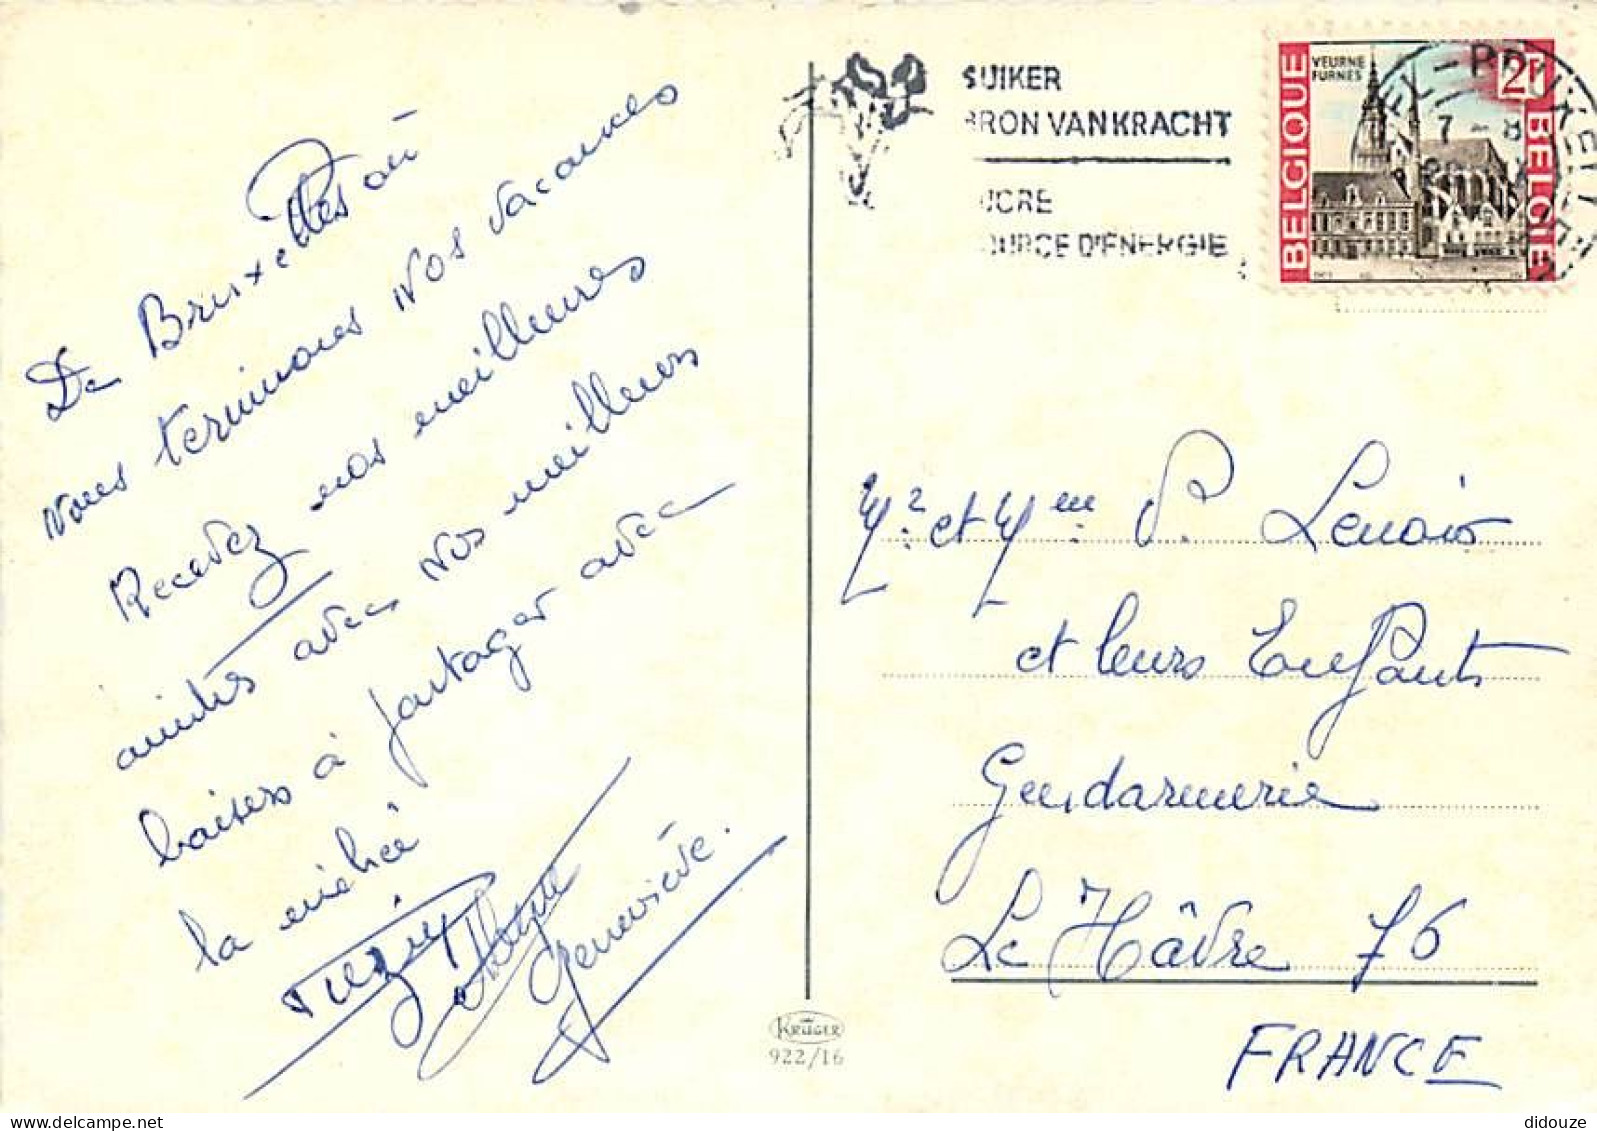 De Bruxelles où
nous terminons nos vacances
Recevez nos meilleures
amitiés avec nos meilleurs
baisers à partager avec
la
Geneviève.
SUIKER
BRON VAN KRACHT
SUCRE
SOURCE D'ENERGIE
VEURNE
FURNES
2F
BELGIQUE
BELGIE
Mr. et Mme P. Lenoir
et leurs Enfants
Gendarmerie
Le Hâvre 76
FRANCE
KRÜGER
922/16
didouze